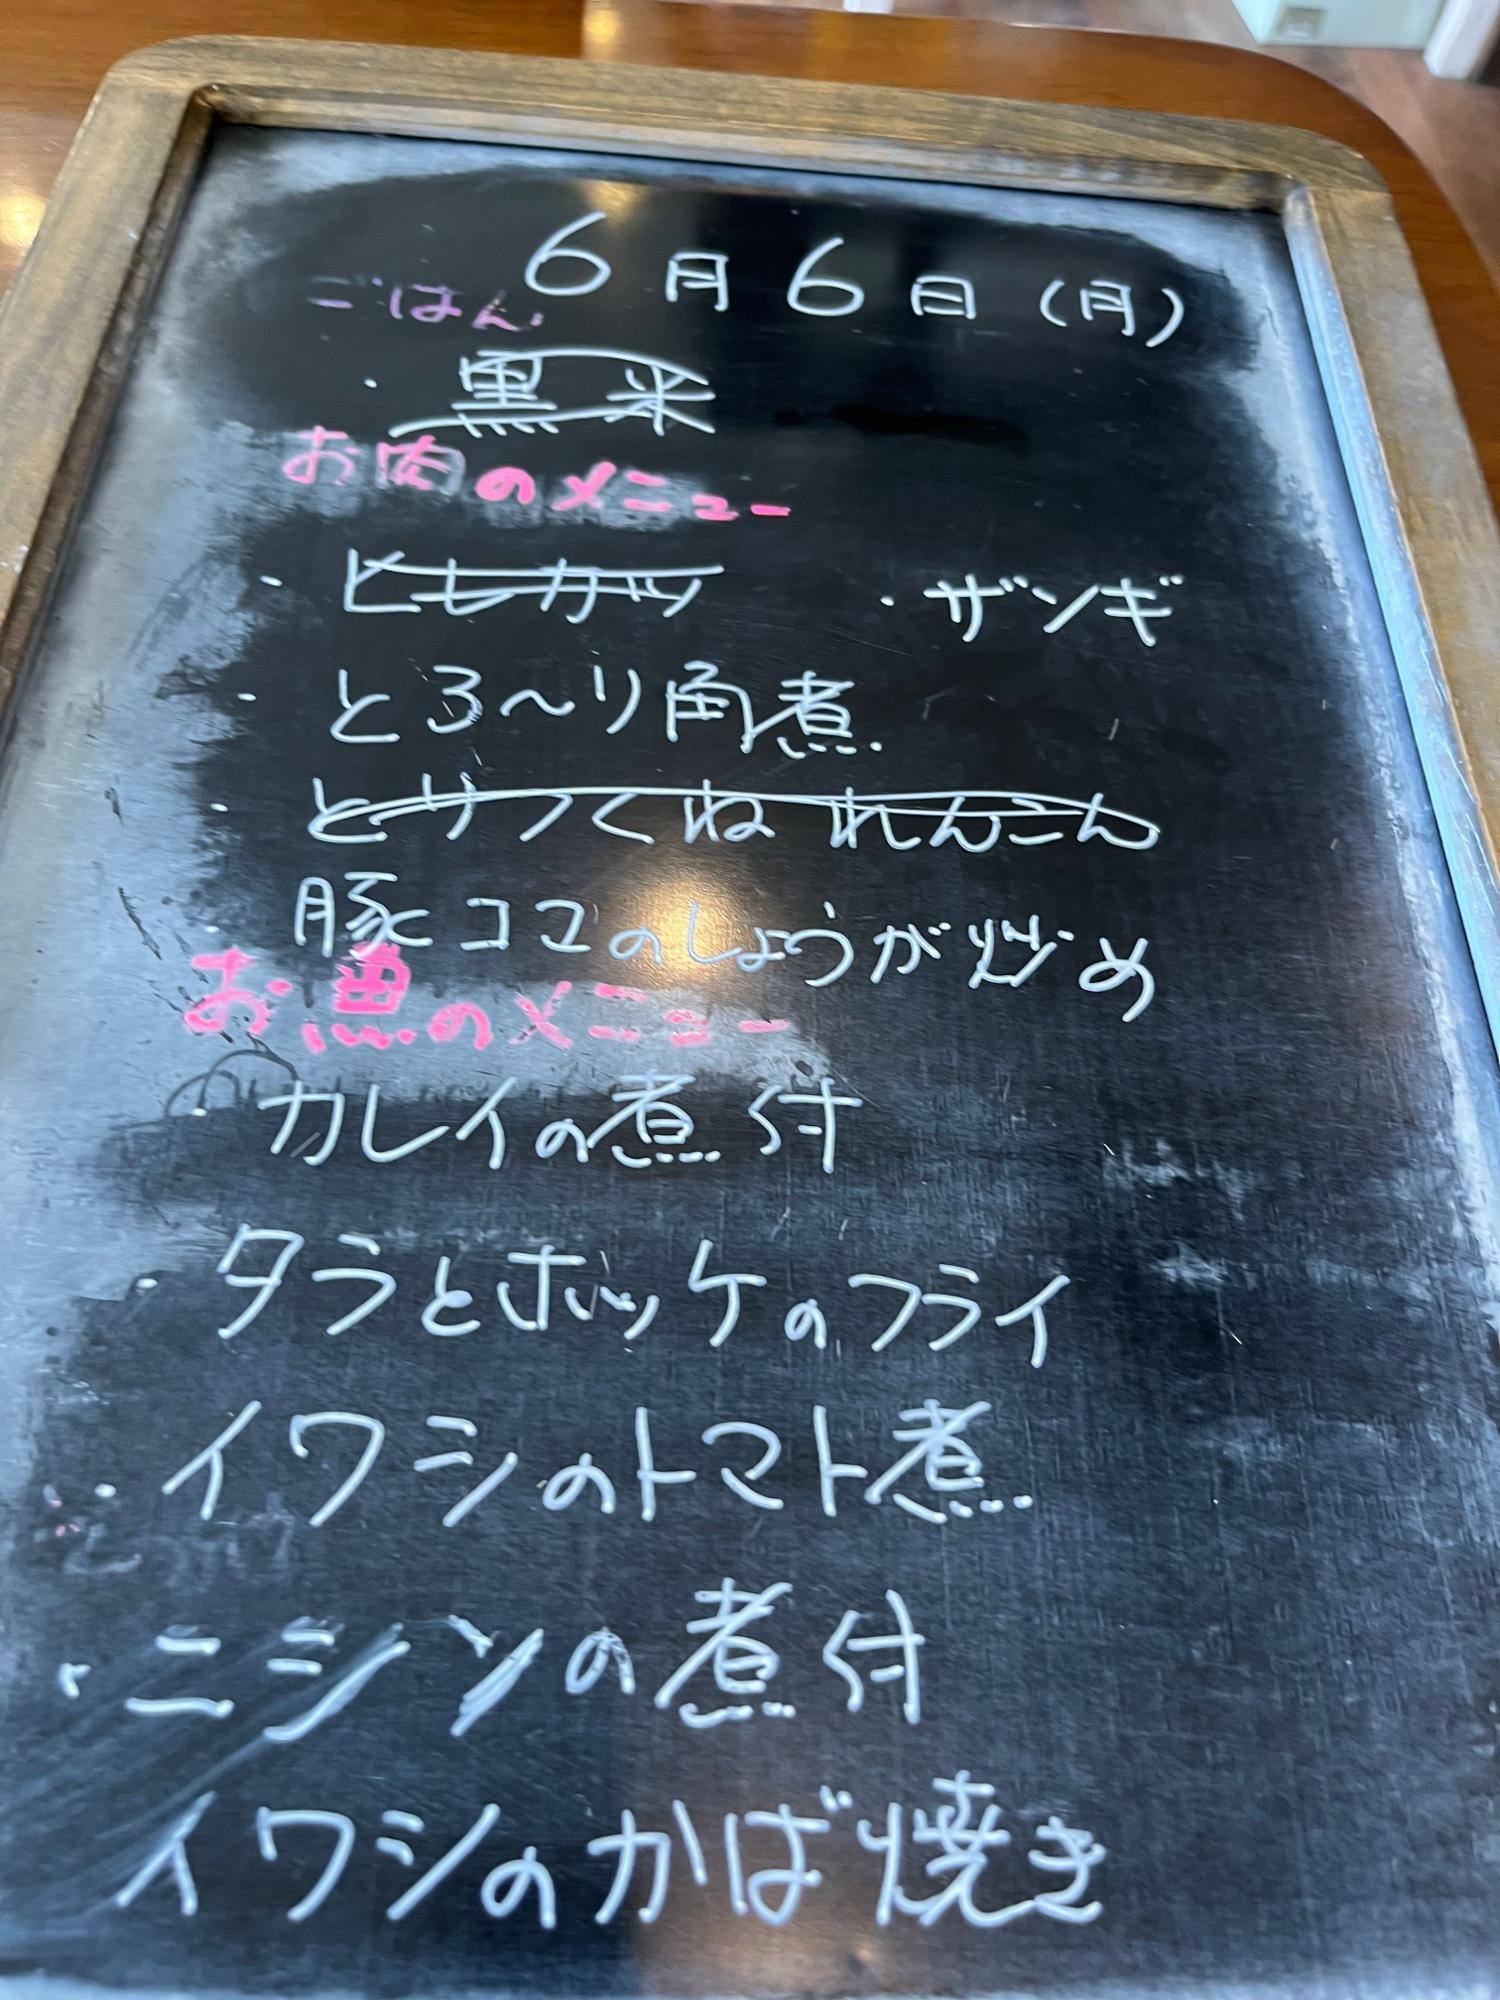 6月6日(月)
ごはん
・黒米
お肉のメニュー
・ヒレカツ ・ザンギ
・とろ〜り角煮
・とりつくね れんこん
・豚コマのしょうが炒め
お魚のメニュー
・カレイの煮付
・タラとホッケのフライ
・イワシのトマト煮
・ニシンの煮付
イワシのかば焼き